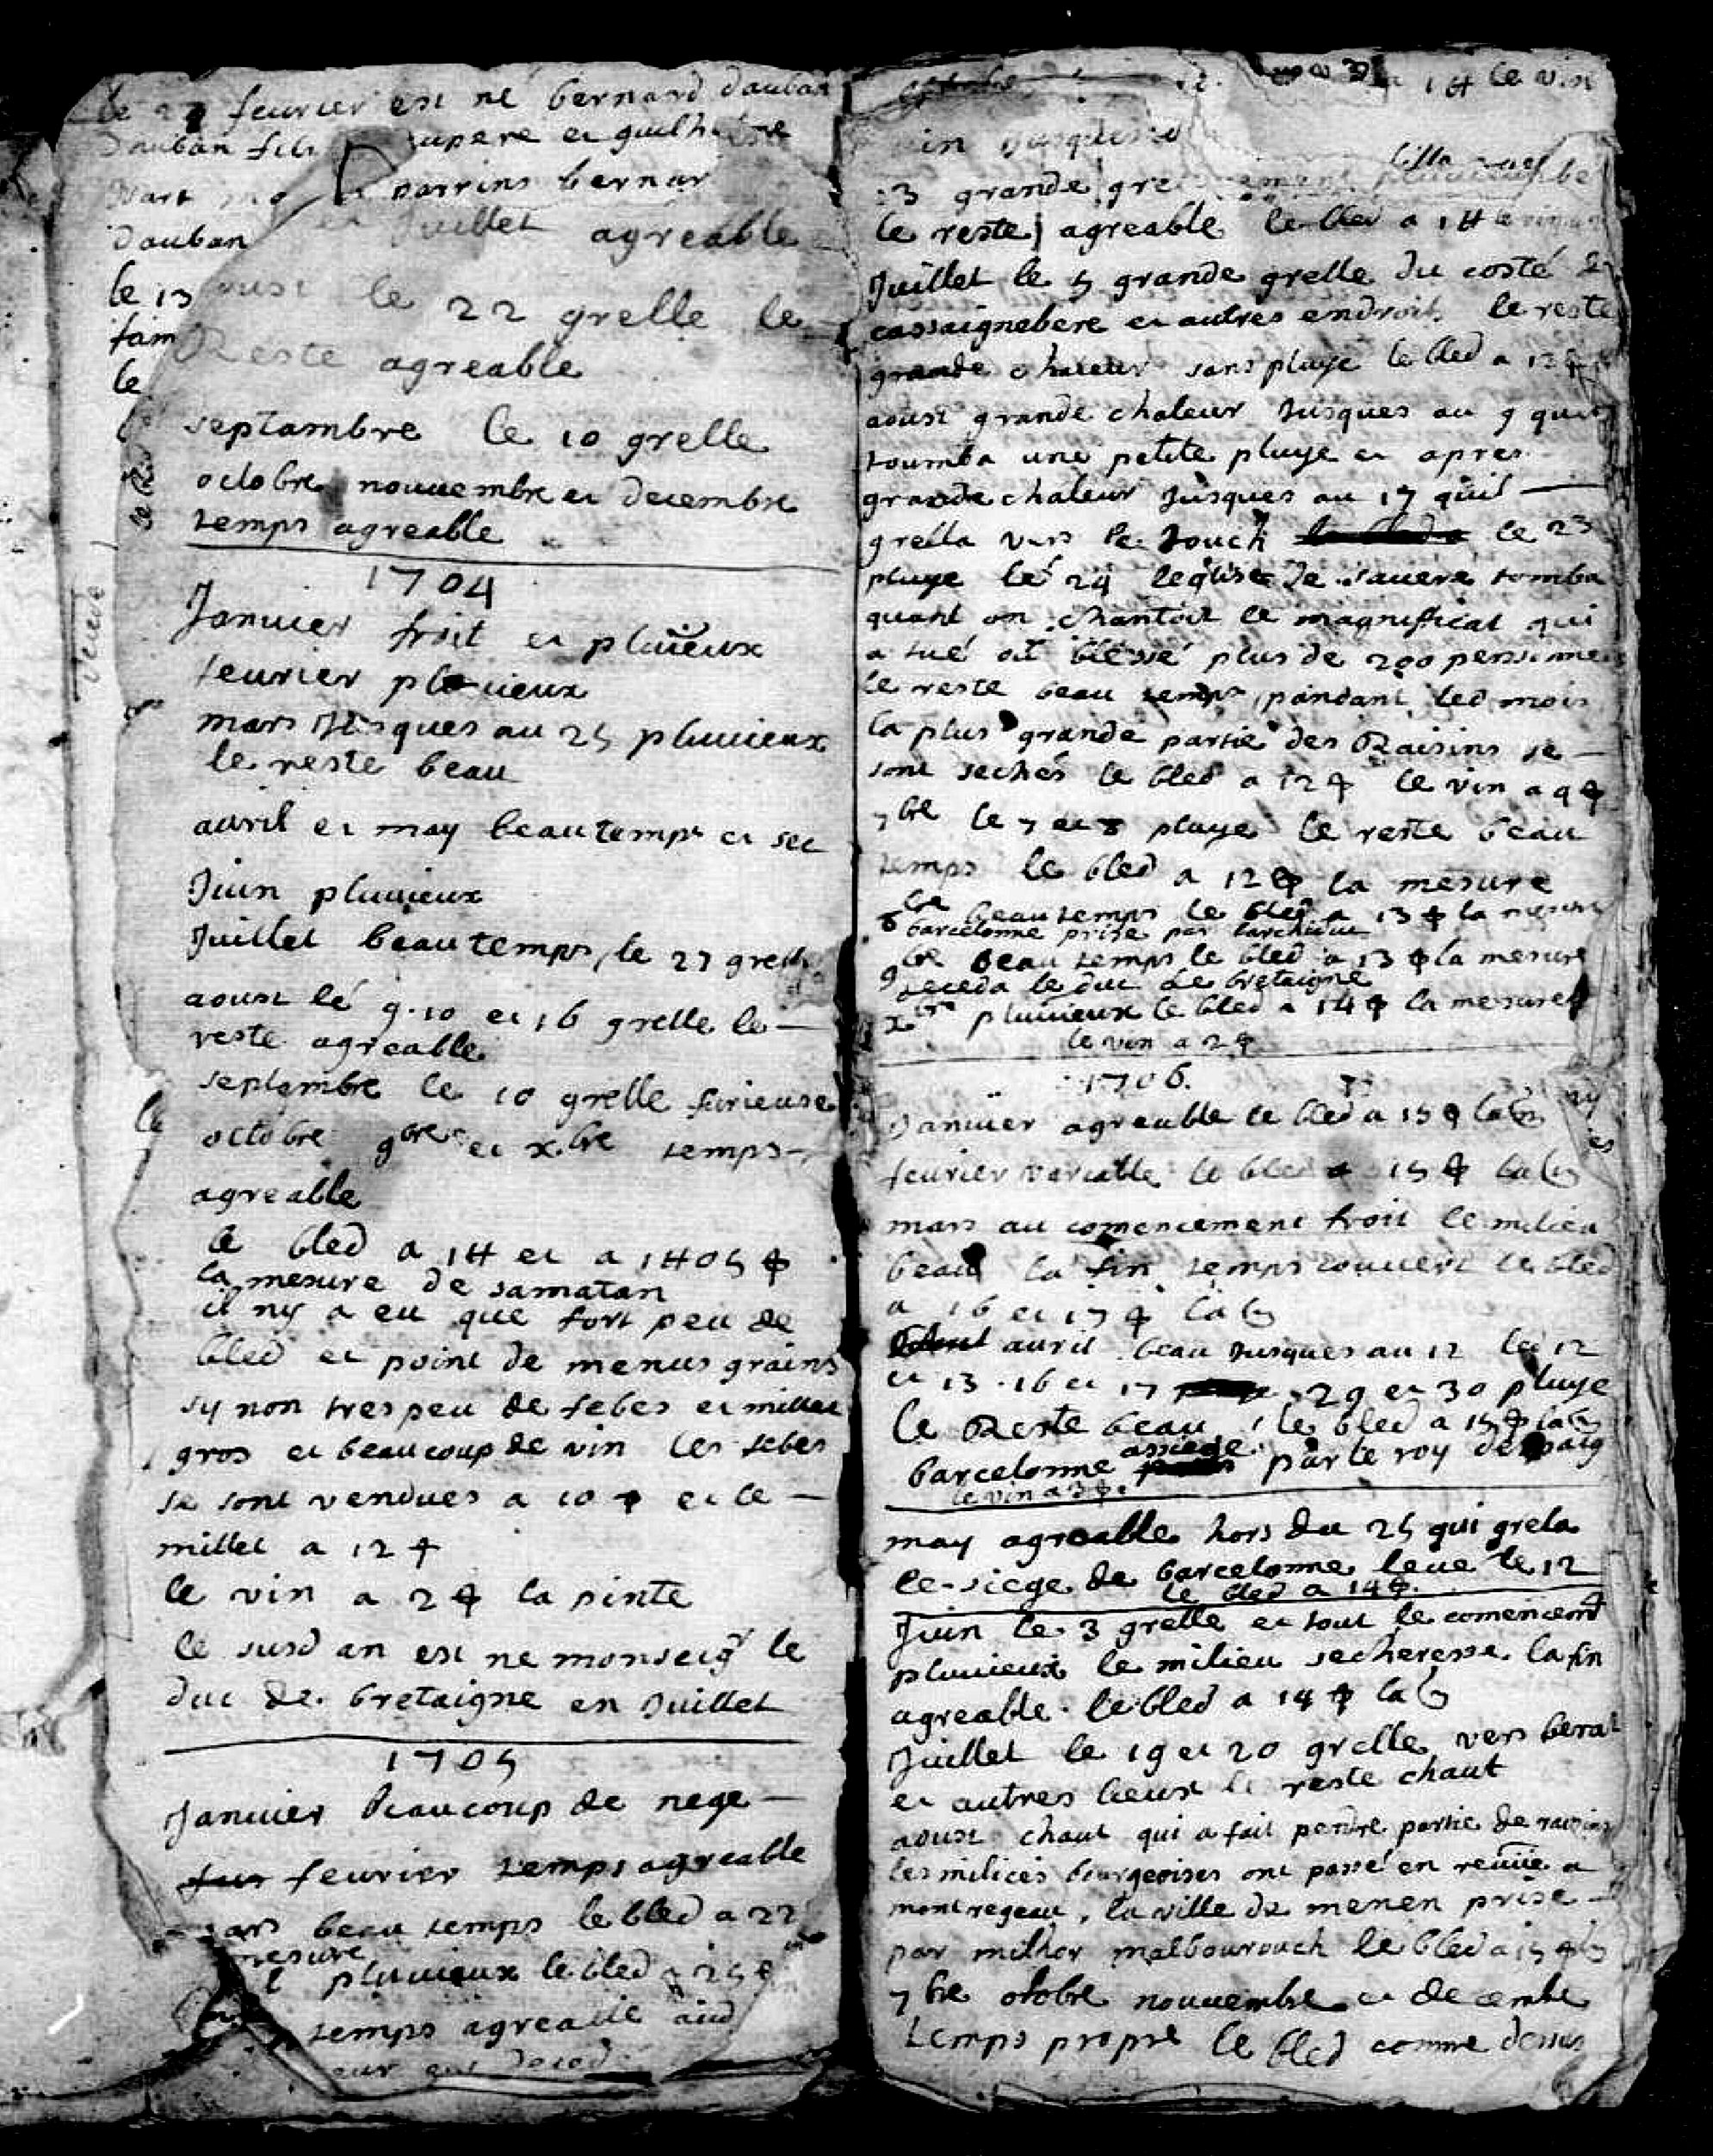 le 27 feurier est né bernard dauban
dauban fils upere et guilh
parrins bernar
dauban
et Juillet agreable
le 13 oust le 22 grelle le
Reste agreable
septambre le 10 grelle
octobre nouuembre et decembre
temps agreable
1704
Januier froit et pluuieux
feurier pluuieux
mars Jusques au 25 pluuieux
le reste beau
auril et may beau temps et sec
Juin pluuieux
Juillet beau temps, le 27 grelle
aoust le 9. 10 et 16 grelle le
reste agreable
septambre le 10 grelle furieuse
octobre 9bre et xbre temps
agreable
le bled a 1# et a 1#05 ₰
la mesure de samatan
il ny a eu que fort peu de
bled et point de menus grains
sy non tres peu de febes et millet
gros et beaucoup de vin les febes
se sont vendues a 10 ₰ et le
millet a 12 ₰
le vin a 2 ₰ la pinte
le susd an est ne monseigr le
duc de bretaigne en Juillet
1705
Januier beaucoup de nege
feurier temps agreable
ars beau temps le bled a 22
mesure
l pluuieux le bled a 25 ₰
temps agreable
1# le vin
Jusques
grande gre
le reste agreable le bled a 1# le vin
Juillet le 5 grande grelle du costé de
cassaignebere et autres endroit le reste
grande chaleur sans pluye le bled a 12 ₰
aoust grande chaleur Jusques au 9 quil
toumba une petite pluye et apres
grande chaleur Jusques au 17 quil
grella vers le touch le 23
pluye le 24 leglise de sauere tomba
quant on chantoit le magnificat qui
a tué ou blessé plus de 200 personnes
le reste beau temps pandant led mois
la plus grande partie des Raisins se
sont sechés le bled a 12 ₰ le vin a 9 ₰
7bre le 7 et 8 pluye le reste beau
temps le bled a 12 ₰ la mesure
8bre beau temps le bled a 13 ₰ la mesure
barcelonne prise par larchiduc
9bre beau temps le bled a 13 ₰ la mesure
deceda le duc de bretaigne
xbre pluuieux le bled a 14 ₰ la mesure
le vin a 2 ₰
1706.
Januier agreable le bled a 15 ₰ la m
feurier variable le bled a 15 ₰ la m
mars au comencement froit le milieu
beau la fin temps couuert le bled
a 16 et 17 ₰ la m
auril beau Jusques au 12 le 12
et 13. 16 et 17 29 et 30 pluye
le Reste beau, le bled a 15 ₰ la m
barcelonne assiege par le roy despaig
le vin a 3 ₰.
may agreable hors du 25 qui grela
le siege de barcelonne leue le 12
le bled a 14 ₰.
Juin le 3 grelle et tout le comencemt
pluuieux le milieu secheresse la fin
agreable. le bled a 14 ₰ la m
Juillet le 19 et 20 grelle vers berat
et autres lieux le reste chaut
aoust chaut qui a fait perdre partie de raisins
les milices bourgeoises ont passé en reuüe a
montregeau, la ville de menen prise
par milhor malbourouch le bled a 15 ₰ m
7bre otobre nouuembre et decembre
temps propre le bled comme dessus